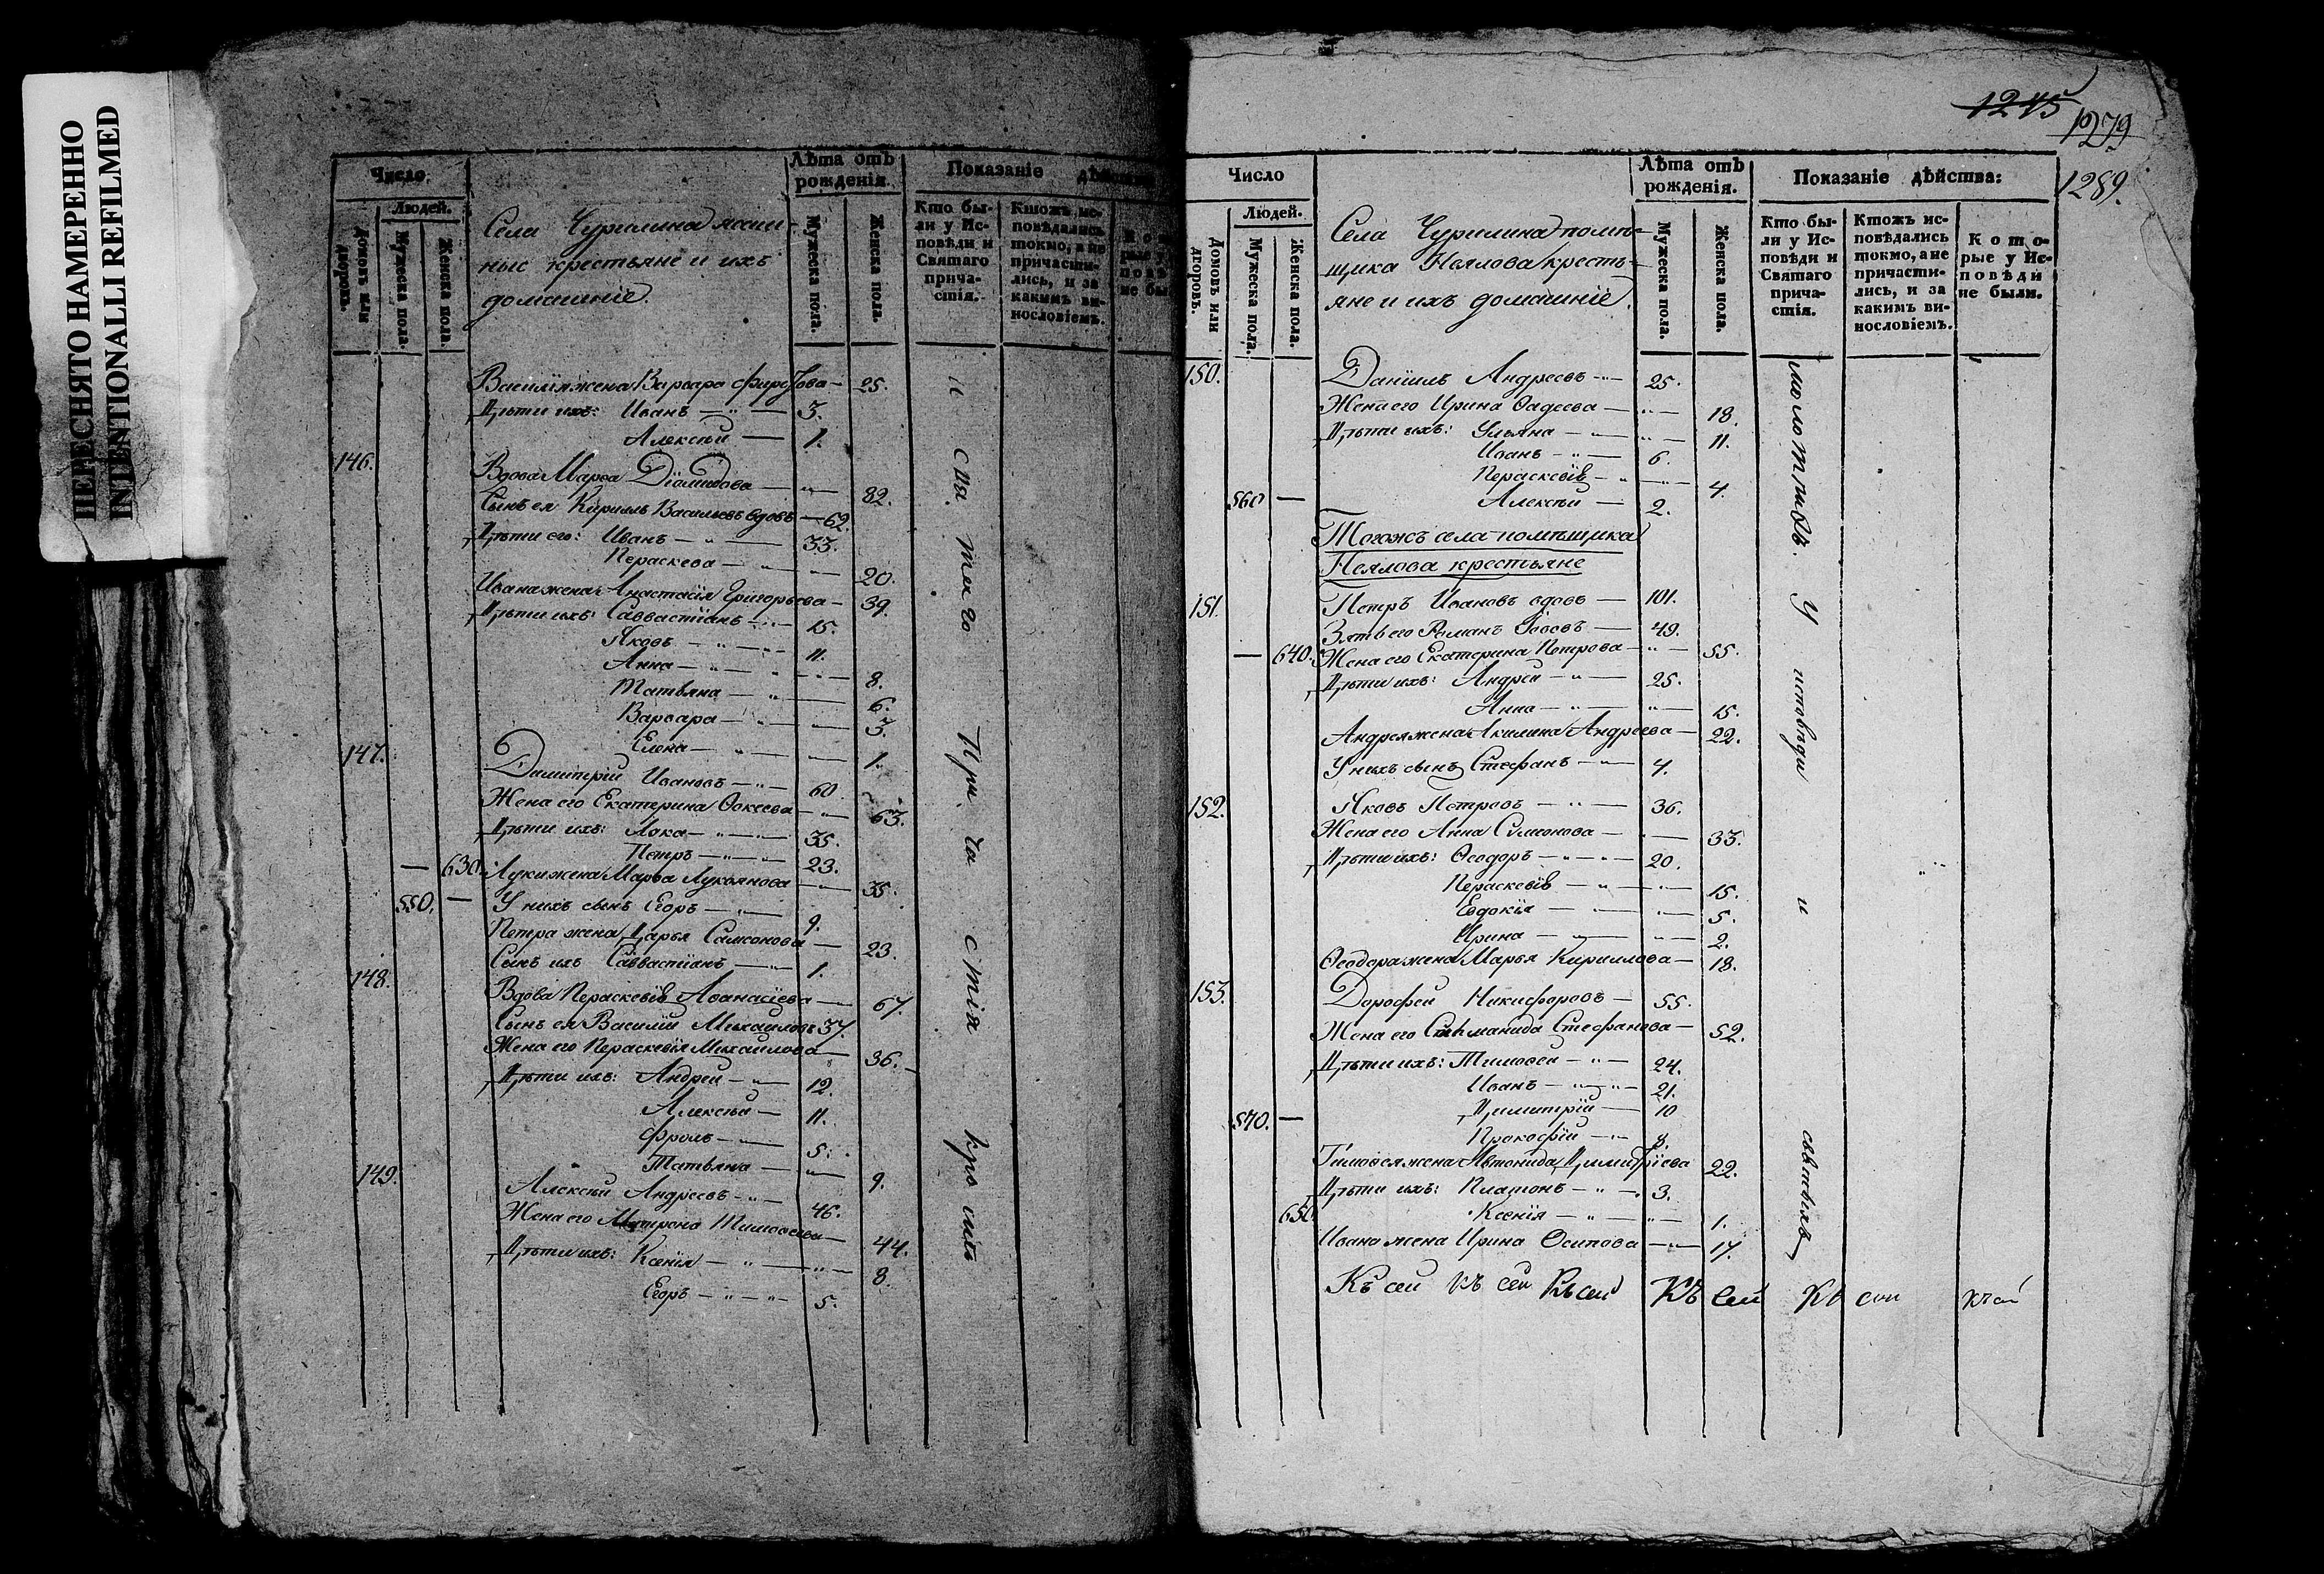 ПЕРЕСНЯТО НАМЕРЕННО
INTENTIONALLI REFILMED
Число.
Людей.
Домовъ или дворовъ.
Мужеска пола.
Женска пола.
Села Чурилина ясаш-
ные крестьяне и ихъ
домашніе.
Лѣта отъ рожденія.
Мужеска пола.
Женска пола.
Показаніе
Кто бы-
ли у Ис-
повѣди и
Святаго
прича-
стія.
Ктожъ ис-
повѣдались
токмо, а не
причасти-
лись, и за
какимъ ви-
нословіемъ.
Василія жена Варвара — 25.
Дѣти ихъ: Иванъ — 3.
Алексѣй — 1.
146. Вдова Марѳа Діомидова — 82.
Сынъ ея Кириллъ Васильевъ вдовъ — 62.
Дѣти его: Иванъ — 33.
Пераскева — 20.
Ивана жена Анастасія Григорьева — 39.
Дѣти ихъ: Савастіанъ — 15.
Яковъ — 11.
Анна — 8.
Татьяна — 6.
Варвара — 3.
Елена — 1.
147. Димитрій Ивановъ — 60
Жена его Екатерина Ѳокеева — 63.
Дѣти ихъ: Лука — 35.
Петръ — 23.
— 630. Луки жена Марѳа Лукьянова — 35.
550. — У нихъ сынъ Егоръ — 9.
Петра жена Дарья Самсонова — 23.
Сынъ ихъ Савастіанъ — 1.
148. Вдова Пераскевія Аѳанасіева — 67.
Сынъ ея Василій Михаиловъ 37.
Жена его Пераскевія Михаилова — 36.
Дѣти ихъ: Андрей — 12.
Алексѣй — 11.
Фролъ — 5.
Татьяна — 9.
149. Алексѣй Андреевъ — 46.
Жена его Матрона Тимоѳеева — 44.
Дѣти ихъ: Ксенія — 8.
Егоръ — 5.
При ча стія
1245
1279
1289.
Число
Людей.
Домовъ или дворовъ.
Мужеска пола.
Женска пола.
Села Чурилина помѣ-
щика Неялова кресть-
яне и ихъ домашніе.
Лѣта отъ рожденія.
Мужеска пола.
Женска пола.
Показаніе дѣйства:
Кто бы-
ли у Ис-
повѣди и
Святаго
прича-
стія.
Ктожъ ис-
повѣдались
токмо, а не
причасти-
лись, и за
какимъ ви-
нословіемъ.
Кото-
рые у Ис-
повѣди
не были.
150. Даніилъ Андреевъ — 25.
Жена его Ирина Ѳадеева — 18.
Дѣти ихъ: Ульяна — 11.
Иванъ — 6.
Пераскевія — 4.
560 — Алексѣй — 2.
Тогожъ села помѣщика
Неялова крестьяне
151. Петръ Ивановъ вдовъ — 101.
Зять его Романъ — 49.
— 640. Жена его Екатерина Петрова — 55.
Дѣти ихъ: Андрей — 25.
Анна — 15.
Андрея жена Акилина Андреева — 22.
У нихъ сынъ Стефанъ — 4.
152. Яковъ Петровъ — 36.
Жена его Анна Симеонова — 33.
Дѣти ихъ: Ѳеодоръ — 20.
Пераскевія — 15.
Евдокія — 5.
Ирина — 2.
Ѳеодора жена Марья Кириллова — 18.
153. Дорофей Никифоровъ — 55.
Жена его Стефанова — 52.
Дѣти ихъ: Тимоѳей — 24.
Иванъ — 21.
570. — Димитрій — 10
Прокофій — 8.
Тимоѳея жена Антонида Димитріева 22.
Дѣти ихъ: Платонъ — 3.
650 Ксенія — 1.
Ивана жена Ирина Осипова — 17.
У исповѣди и
Къ сей къ сей Къ сей Къ сей Къ сей